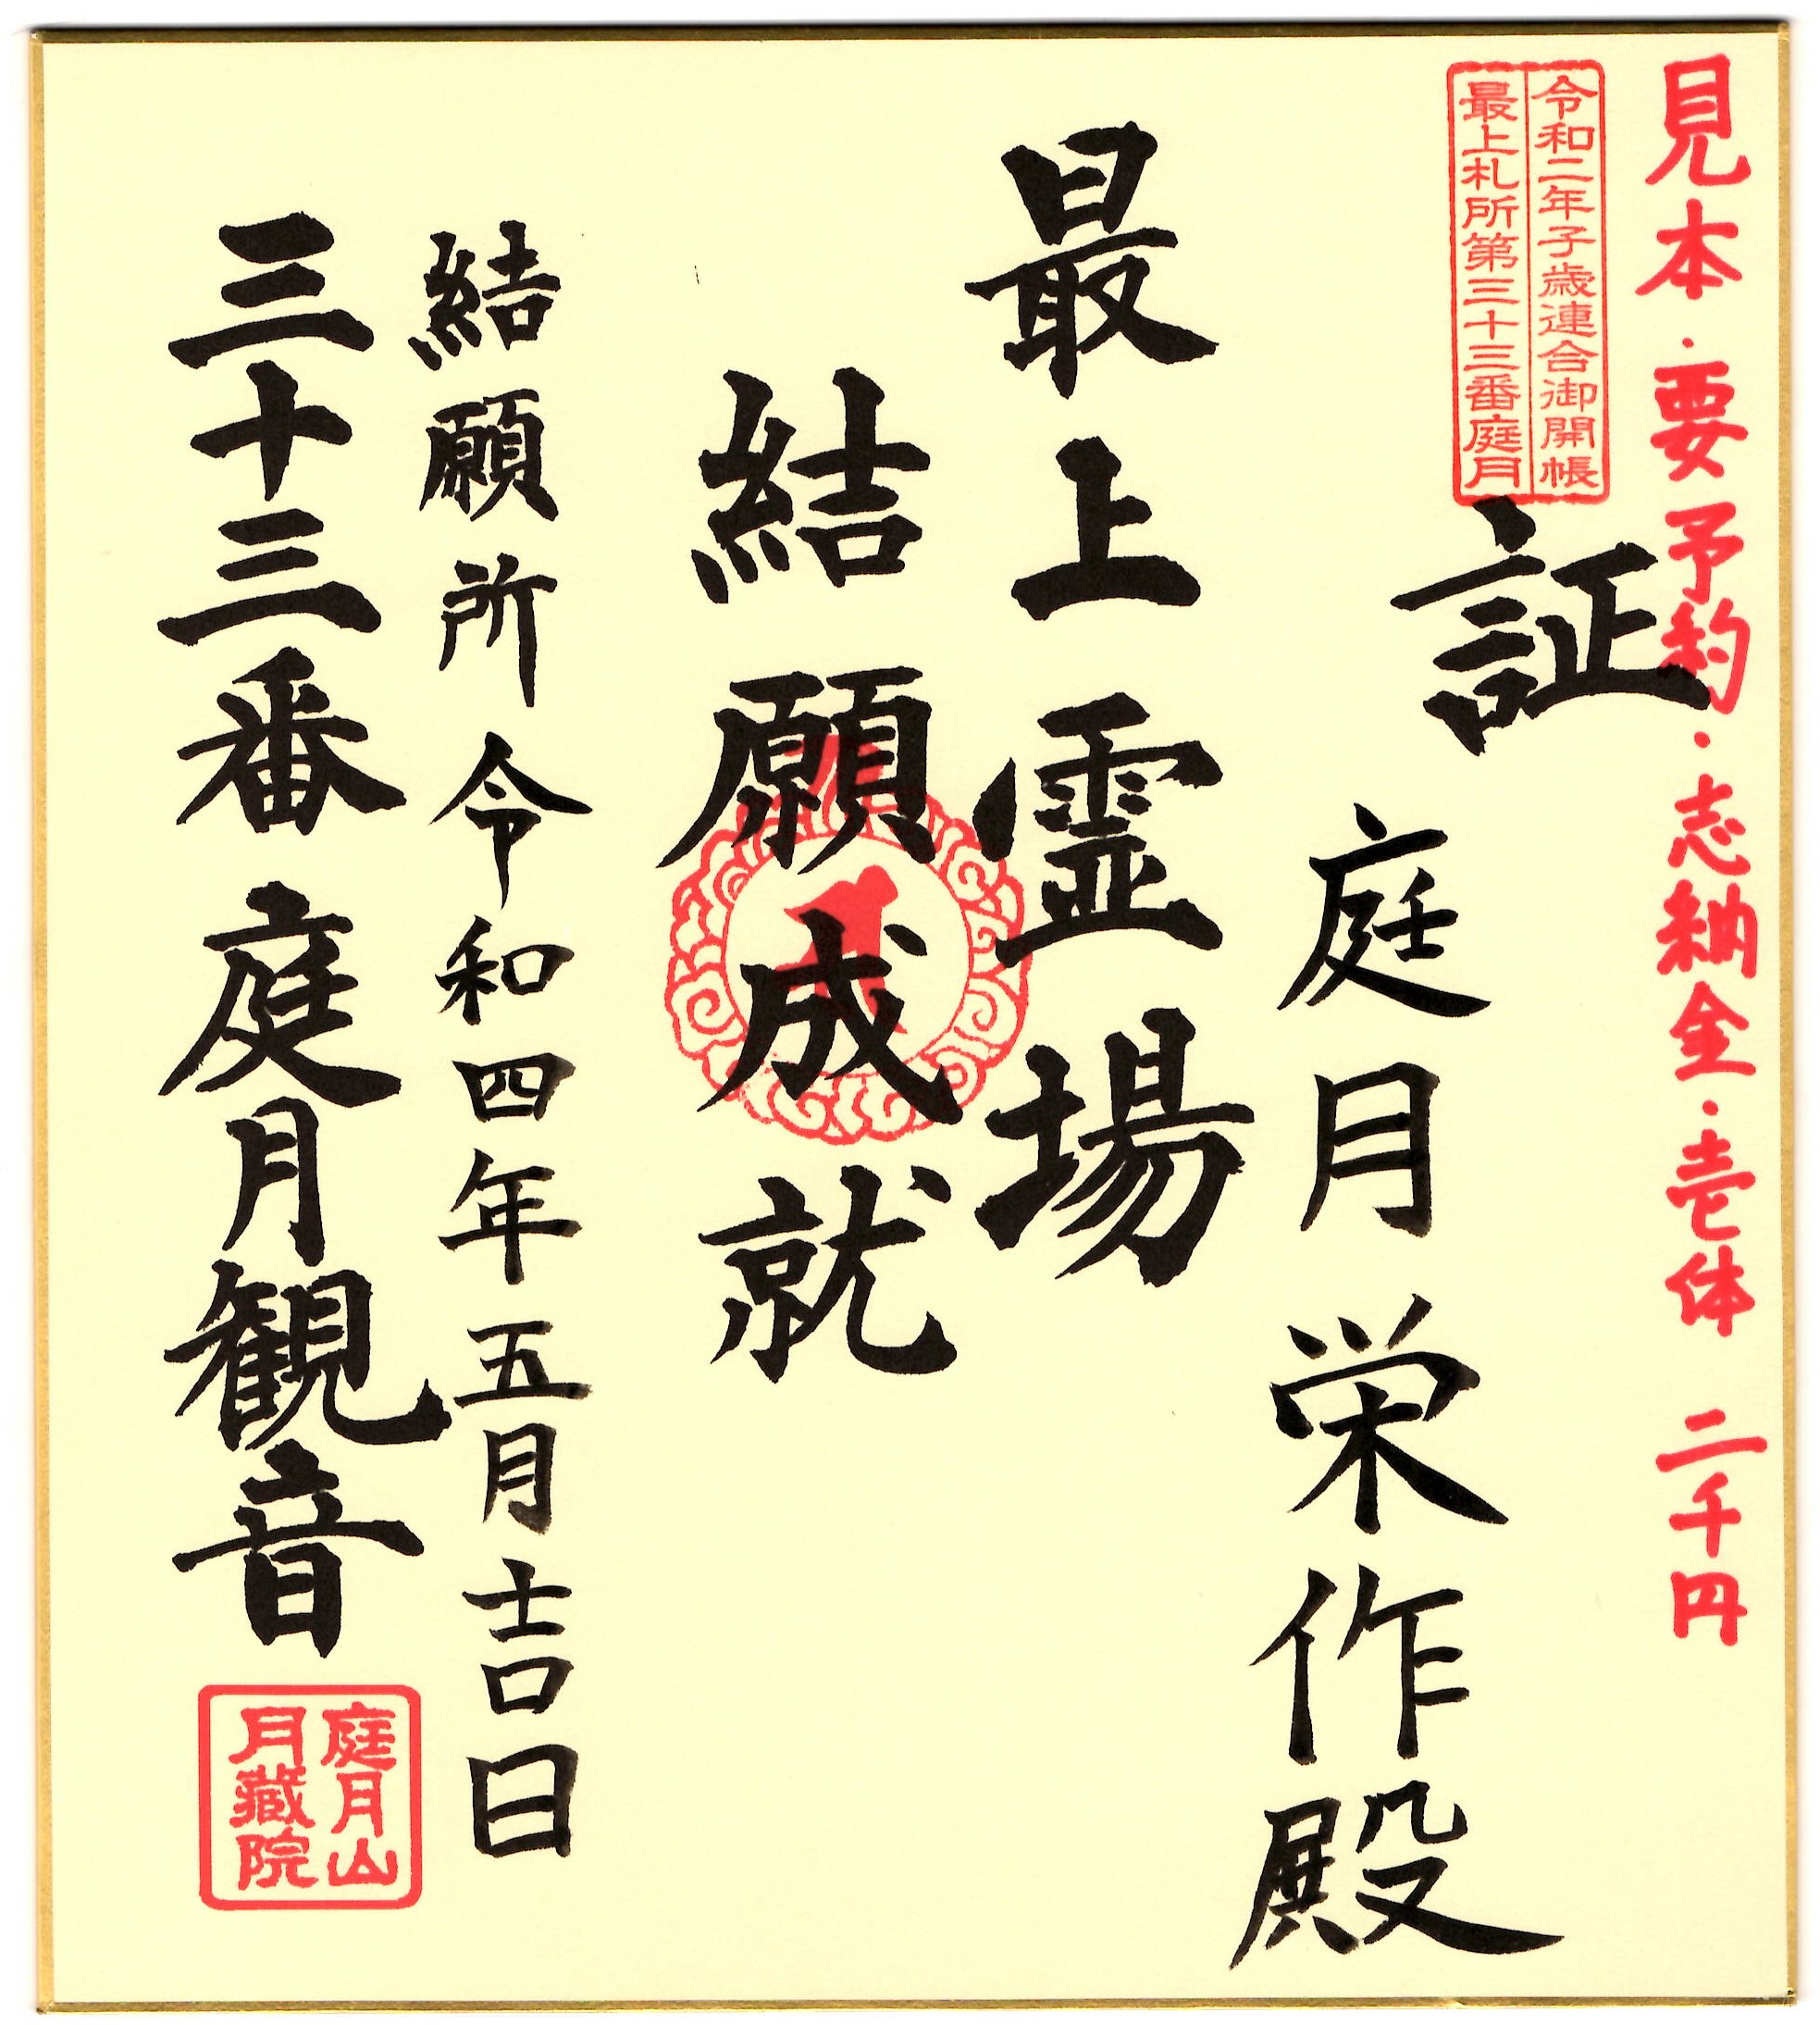 見本・要予約・志納金・壱体 二千円
令和二年子歳連合御開帳
最上札所第三十三番庭月
証
庭月栄作殿
最上霊場
結願成就
結願所 令和四年五月吉日
三十三番 庭月観音
庭月山
月蔵院